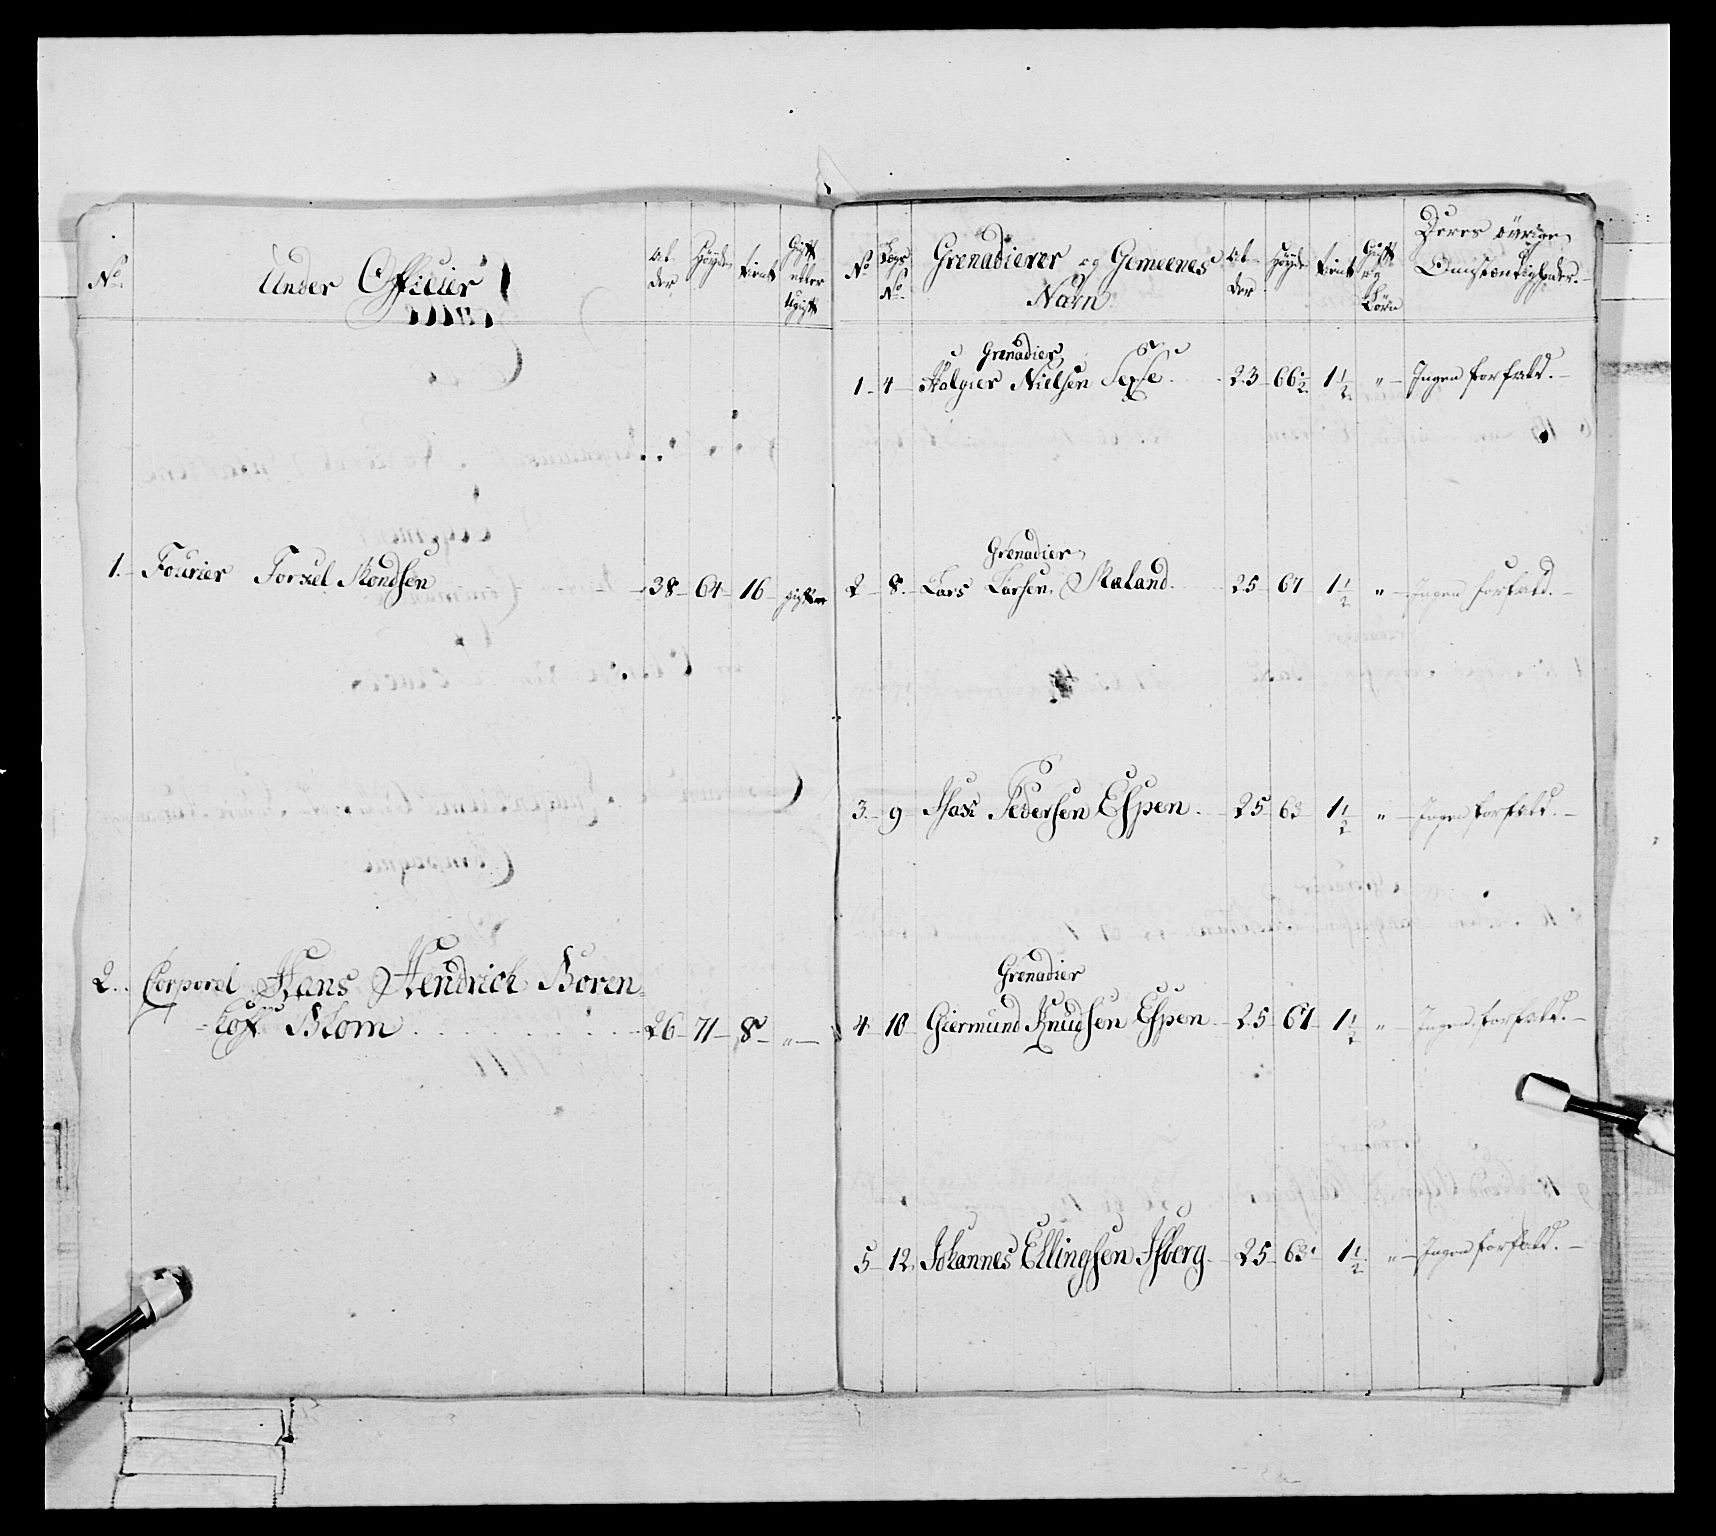 No
Under Officier
Al
der
Høyde
tient
Gift
eller
Ugift
1. Fourier Torkel Mondsen 38 64 16 gift
2. Corporal Hans Hendrich Boren
Blom 26 71 8 "
No
Lægs
No
Grenadierer og Gemeenes
Nafn
Al
der
Høyde
tient
Gift
og
Børn
Deres øvrige
Omstændigheder.
Grenadier
1 4 Holgier Nielsen Sexe 23 66½ 1½ " Ingen forfald.
Grenadier
2 8. Lars Larsen Maland 25 67 1½ " Ingen forfald.
3. 9 Isax Pedersen Espen 25 63 1½ " Ingen forfald.
Grenadier
4 10 Giermund Knudsen Espen 25 67 1½ " Ingen forfald.
5 12 Johannes Ellingsen Isberg 25 63 1½ " Ingen forfald.